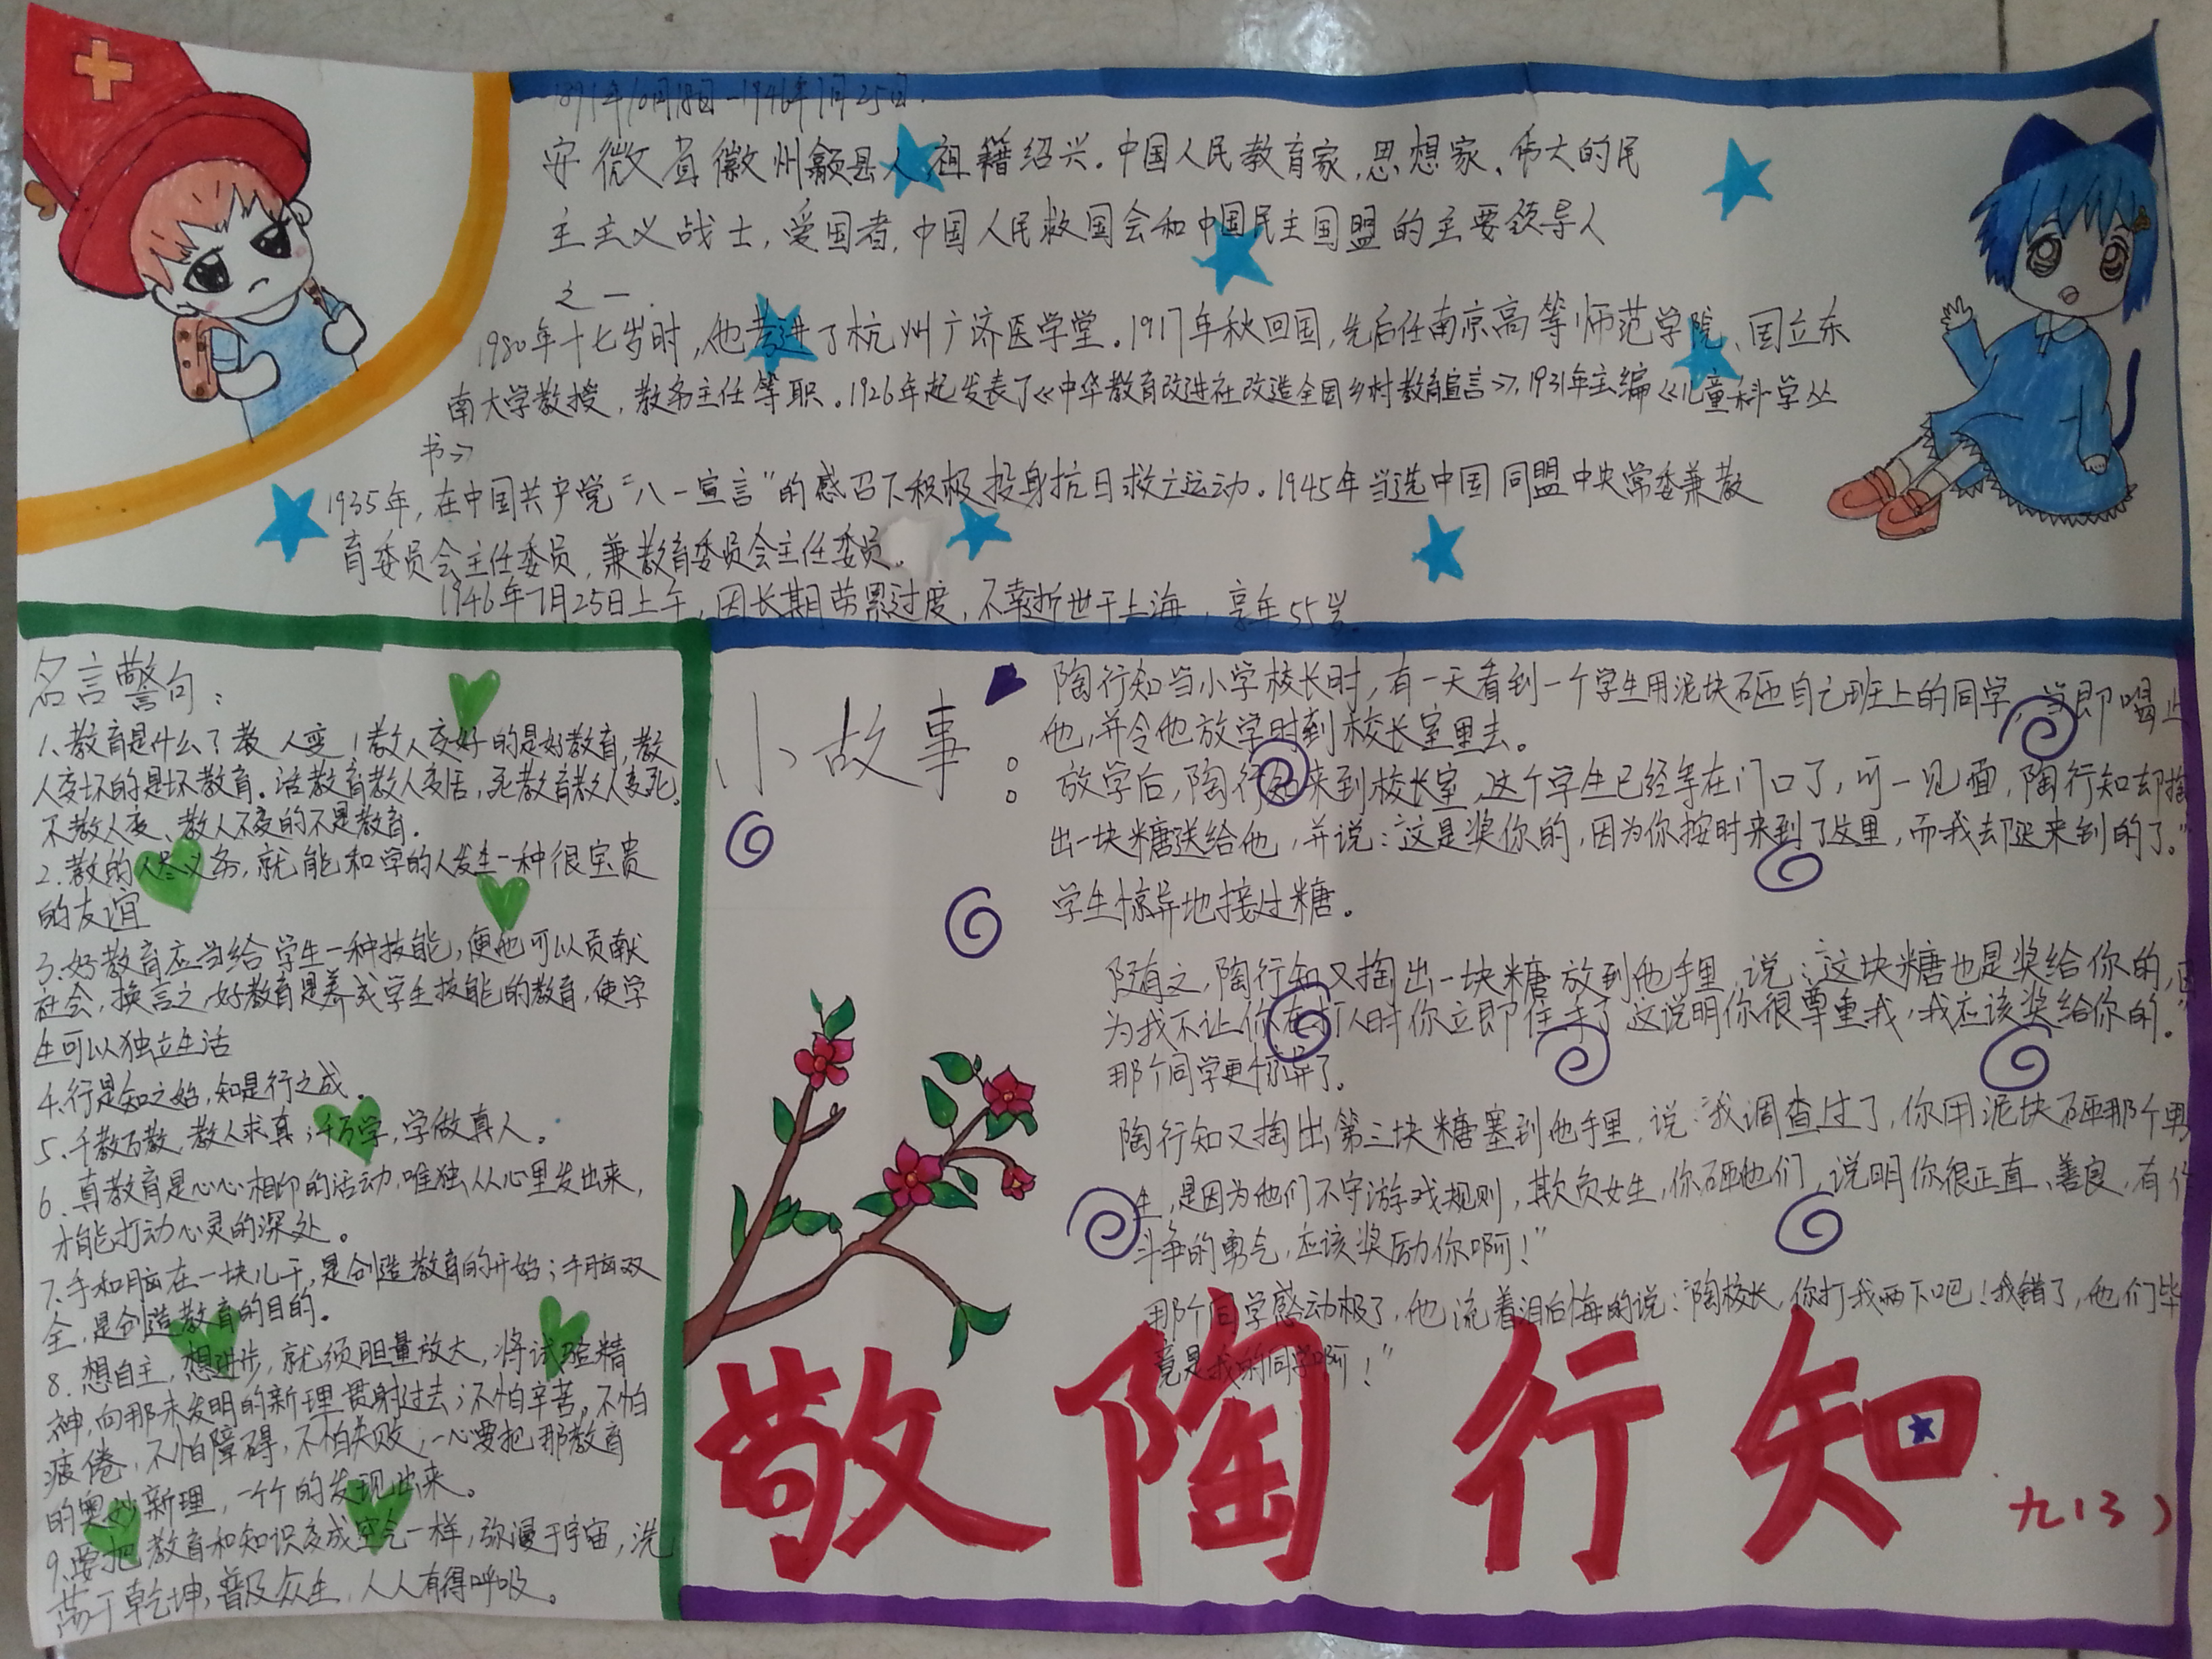 1891年10月18日-1946年7月25日.
安微省徽州歙县人祖籍绍兴.中国人民教育家,思想家、伟大的民
主主义战士,爱国者,中国人民救国会和中国民主同盟的主要领导人
之一.
1980年十七岁时,他考进了杭州广济医学堂.1917年秋回国,先后任南京高等师范学院、国立东
南大学教授,教务主任等职。1926年起发表了《中华教育改进社改造全国乡村教育宣言》,1931年主编《儿童科学丛
书》
1935年,在中国共产党“八一宣言”的感召下积极投身抗日救亡运动。1945年当选中国同盟中央常委兼教
育委员会主任委员,兼教育委员会主任委员。
1946年7月25日上午,因长期劳累过度,不幸逝世于上海,享年55岁.
名言警句:
1、教育是什么?教人变!教人变好的是好教育,教
人变坏的是坏教育.活教育教人变活,死教育教人变死。
不教人变、教人不变的不是教育.
2.教的人尽义务,就能和学的人发生一种很宝贵
的友谊
3.好教育应当给学生一种技能,使他可以贡献
社会,换言之,好教育是养成学生技能的教育,使学
生可以独立生活
4.行是知之始,知是行之成。
5.千教万教,教人求真;千万学,学做真人。
6、真教育是心心相印的活动,唯独从心里发出来,
才能打动心灵的深处。
7、手和脑在一块儿干,是创造教育的开始;手脑双
全,是创造教育的目的.
8.想自主,想进步,就须胆量放大,将试验精
神,向那未发明的新理贯射过去;不怕辛苦,不怕
疲倦,不怕障碍,不怕失败,一心要把那教育
的奥妙新理,一个个的发现出来。
9.要把教育和知识变成空气一样,弥漫于宇宙,洗
荡于乾坤,普及众生,人人有得呼吸。
小故事:
陶行知当小学校长时,有一天看到一个学生用泥块砸自己班上的同学,当即喝止
他,并令他放学时到校长室里去。
放学后,陶行知来到校长室,这个学生已经等在门口了,可一见面,陶行知却掏
出一块糖送给他,并说:这是奖你的,因为你按时来到了这里,而我却迟来到的了。”
学生惊异地接过糖。
随之,陶行知又掏出一块糖放到他手里,说:“这块糖也是奖给你的,因
为我不让你在打人时你立即住手了这说明你很尊重我,我应该奖给你的。”
那个同学更惊异了。
陶行知又掏出第三块糖塞到他手里,说:“我调查过了,你用泥块砸那个男
生,是因为他们不守游戏规则,欺负女生,你砸他们,说明你很正直、善良,有
斗争的勇气,应该奖励你啊!”
那个同学感动极了,他流着泪后悔的说:“陶校长,你打我两下吧!我错了,他们毕
竟是我的同学啊!”
敬陶行知
九(3)